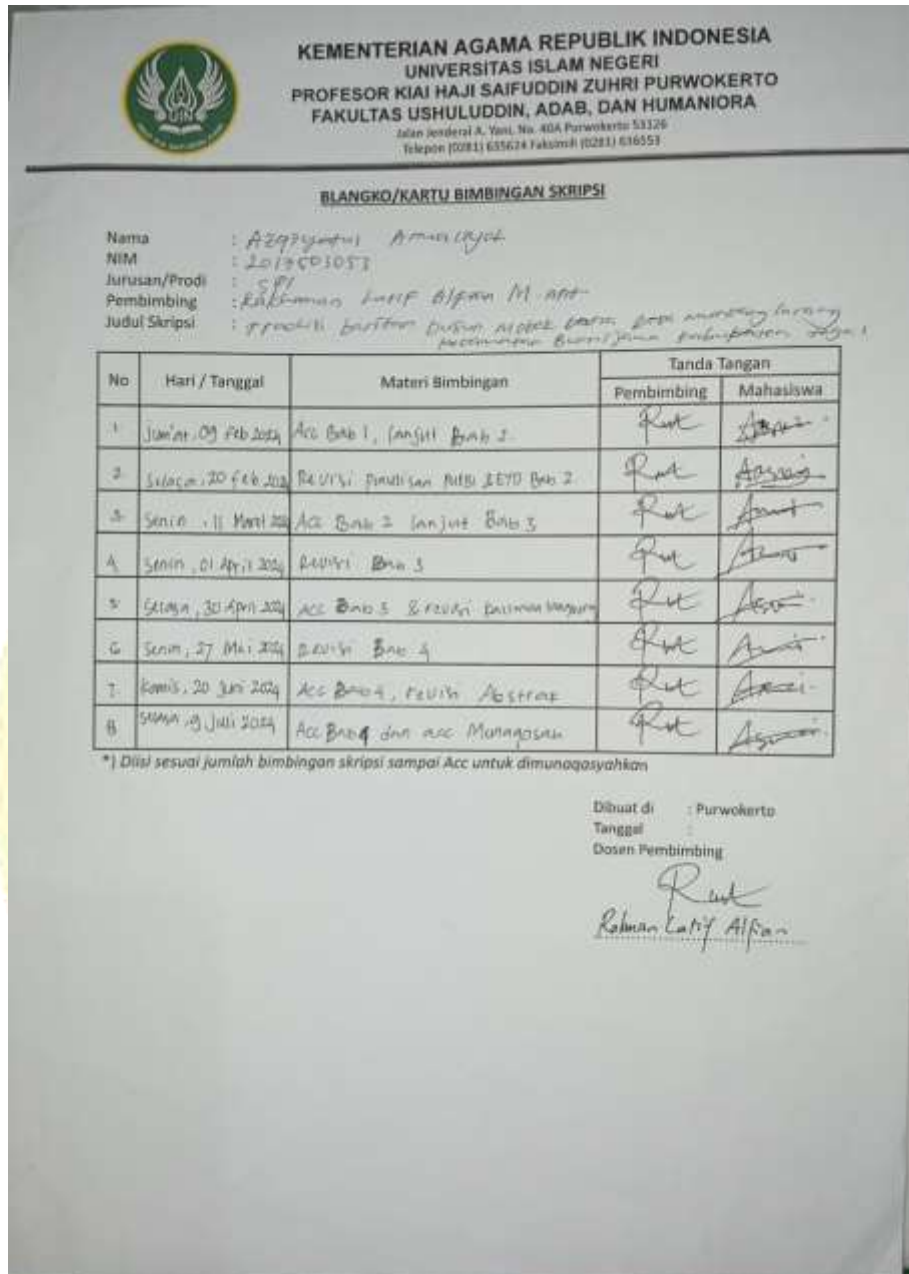 KEMENTERIAN AGAMA REPUBLIK INDONESIA
UNIVERSITAS ISLAM NEGERI
PROFESOR KIAI HAJI SAIFUDDIN ZUHRI PURWOKERTO
FAKULTAS USHULUDDIN, ADAB, DAN HUMANIORA
Jalan Jenderal A. Yani, No. 40A Purwokerto 53126
Telepon (0281) 635624 Faksimili (0281) 636553
UIN
BLANGKO/KARTU BIMBINGAN SKRIPSI
Nama :
NIM : 2017503053
Jurusan/Prodi : SPI
Pembimbing : Rakhman Latif Alfian M
Judul Skripsi : Tradisi baritan Dusun
Kecamatan Bumijawa Kabupaten Tegal
No Hari / Tanggal Materi Bimbingan Tanda Tangan
Pembimbing Mahasiswa
1 Jum'at, 09 Feb 2024 Acc Bab 1, lanjut Bab 2
2 Selasa, 20 Feb 2024 Revisi Penulisan Bab 2
3 Senin, 11 Maret 2024 Acc Bab 2 lanjut Bab 3
4 Senin, 01 April 2024 Revisi Bab 3
5 Selasa, 30 April 2024 Acc Bab 3 & revisi
6 Senin, 27 Mei 2024 Revisi Bab 4
7 Komis, 20 Juni 2024 Acc Bab 4, revisi Abstrak
8 9 Juli 2024 Acc Bab 4 dan acc Munaqosah
*) Diisi sesuai jumlah bimbingan skripsi sampai Acc untuk dimunaqasyahkan
Dibuat di : Purwokerto
Tanggal :
Dosen Pembimbing
Rahman Latif Alfian